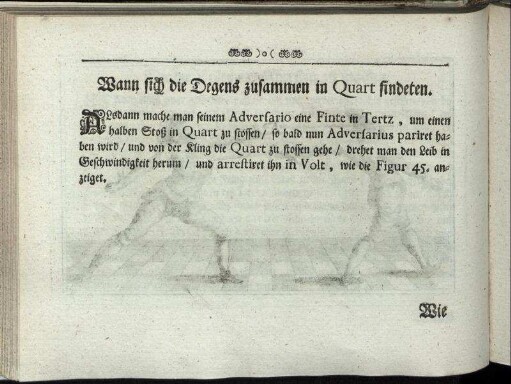 Wann sich die Degens zusammen in Quart findeten.
ALsdann mache man seinem Adversario eine Finte in Tertz, um einen
halben Stoß in Quart zu stossen / so bald nun Adversarius pariret ha-
ben wird / und von der Kling die Quart zu stossen gehe / drehet man den Leib in
Geschwindigkeit herum / und arrestiret ihn in Volt, wie die Figur 45. an-
zeiget.
Wie